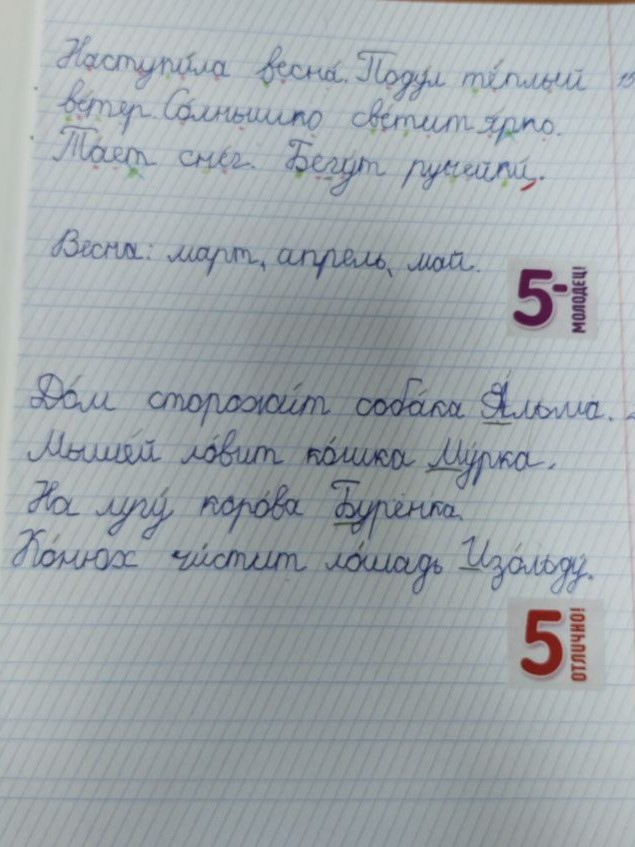 Наступи́ла весна́. Поду́л те́плый
ве́тер. Со́лнышко све́тит я́рко.
Та́ет снег. Бегу́т ручейки́.
Весна: март, апрель, май.
5-
МОЛОДЕЦ!
До́м сторожи́т соба́ка А́льма.
Мыше́й ло́вит ко́шка Му́рка.
На лугу́ коро́ва Буренка.
Ко́нюх чи́стит ло́шадь Изо́льду.
5
ОТЛИЧНО!